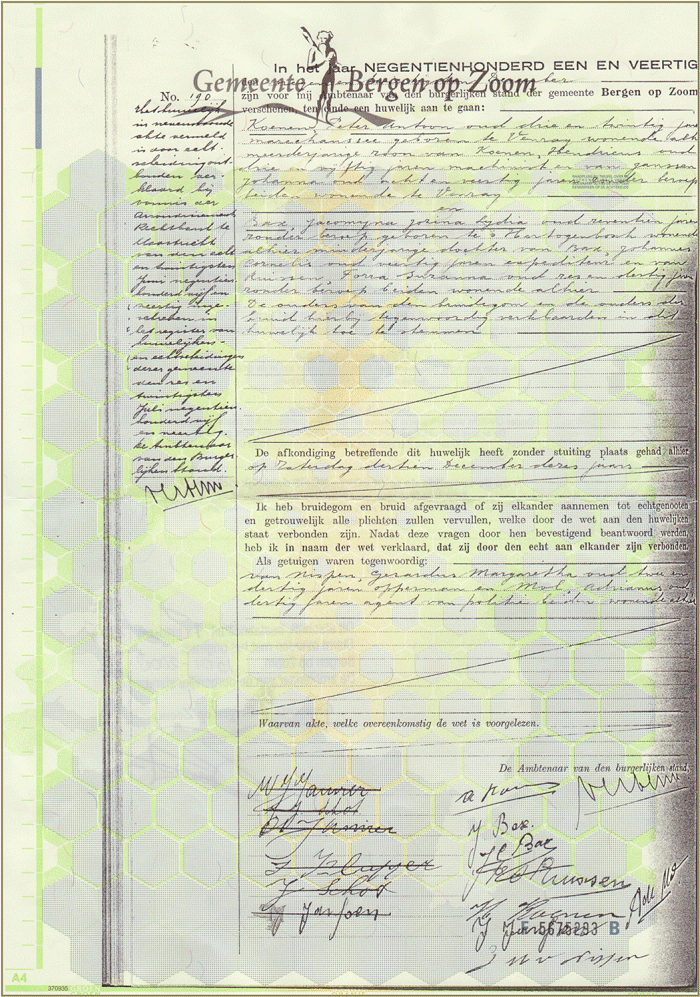 In het jaar NEGENTIENHONDERD EEN EN VEERTIG
Gemeente Bergen op Zoom
zijn voor mij Ambtenaar van den burgerlijken stand der gemeente Bergen op Zoom
verschenen, ten einde een huwelijk aan te gaan:
No. 190
Het huwelijk
in nevenstaande
akte vermeld
is door echt-
scheiding ont-
bonden ver-
klaard bij
vonnis der
Arrondissements
Rechtbank te
Maastricht
van den acht
en twintigsten
Juni negentien
honderd vijf en
veertig Inge-
schreven in
het register van
huwelijken
en echtscheidingen
dezer gemeente
den zes en
twintigsten
Juli negentien
honderd vijf
en veertig.
De Ambtenaar
van den Burger
lijken Stand.
Koenen, Peter Antoon oud drie en twintig jaren
marechaussee geboren te Venray wonende alhier
meerderjarige zoon van Koenen, Hendricus oud
drie en vijftig jaren machinist en van Janssen
Johanna oud acht en veertig jaren zonder beroep
beiden wonende te Venray
en
Bax, Jacomyna Jozina Lydia oud zeventien jaren
zonder beroep geboren te 's Hertogenbosch wonende
alhier minderjarige dochter van Bax, Johannes
Cornelis oud veertig jaren expediteur en van
Suzanna oud zes en dertig jaren
zonder beroep beiden wonende alhier
De ouders van den bruidegom en de ouders der
bruid hierbij tegenwoordig verklaarden in dit
huwelijk toe te stemmen
De afkondiging betreffende dit huwelijk heeft zonder stuiting plaats gehad alhier
op Zaterdag dertien December dezes jaars
Ik heb bruidegom en bruid afgevraagd of zij elkander aannemen tot echtgenooten
en getrouwelijk alle plichten zullen vervullen, welke door de wet aan den huwelijken
staat verbonden zijn. Nadat deze vragen door hen bevestigend beantwoord werden,
heb ik in naam der wet verklaard, dat zij door den echt aan elkander zijn verbonden.
Als getuigen waren tegenwoordig:
van Nispen, Gerardus Margaretha oud twee en
dertig jaren opperman en Mol, Adrianus
dertig jaren agent van politie beiden wonende alhier
Waarvan akte, welke overeenkomstig de wet is voorgelezen.
De Ambtenaar van den burgerlijken stand,
J Bax.
J C Bax
H Koenen
E 5675293 B
A4
370935